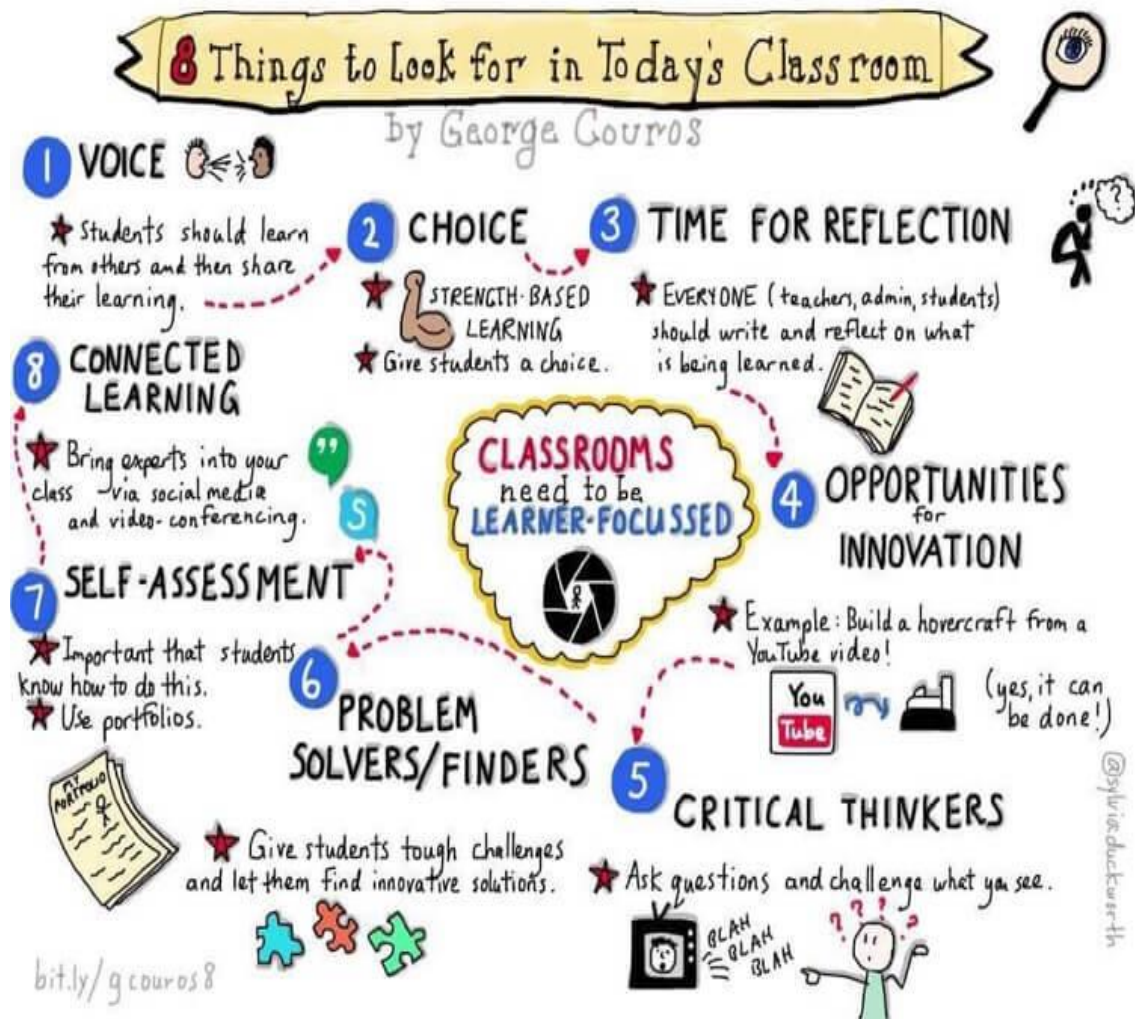 8 Things to Look for in Today's Classroom
by George Couros
1 VOICE
Students should learn
from others and then share
their learning.
2 CHOICE
STRENGTH-BASED
LEARNING
Give students a choice.
3 TIME FOR REFLECTION
EVERYONE (teachers, admin, students)
should write and reflect on what
is being learned.
?
CLASSROOMS
need to be
LEARNER-FOCUSSED
4 OPPORTUNITIES
for
INNOVATION
Example: Build a hovercraft from a
YouTube video!
You
Tube
(yes, it can
be done!)
5 CRITICAL THINKERS
Ask questions and challenge what you see.
BLAH
BLAH
BLAH
? ? ? ?
6 PROBLEM
SOLVERS/FINDERS
Give students tough challenges
and let them find innovative solutions.
7 SELF-ASSESSMENT
Important that students
know how to do this.
Use portfolios.
MY
PORTFOLIO
8 CONNECTED
LEARNING
Bring experts into your
class via social media
and video-conferencing.
"
S
@sylviaduckworth
bit.ly/gcouros8